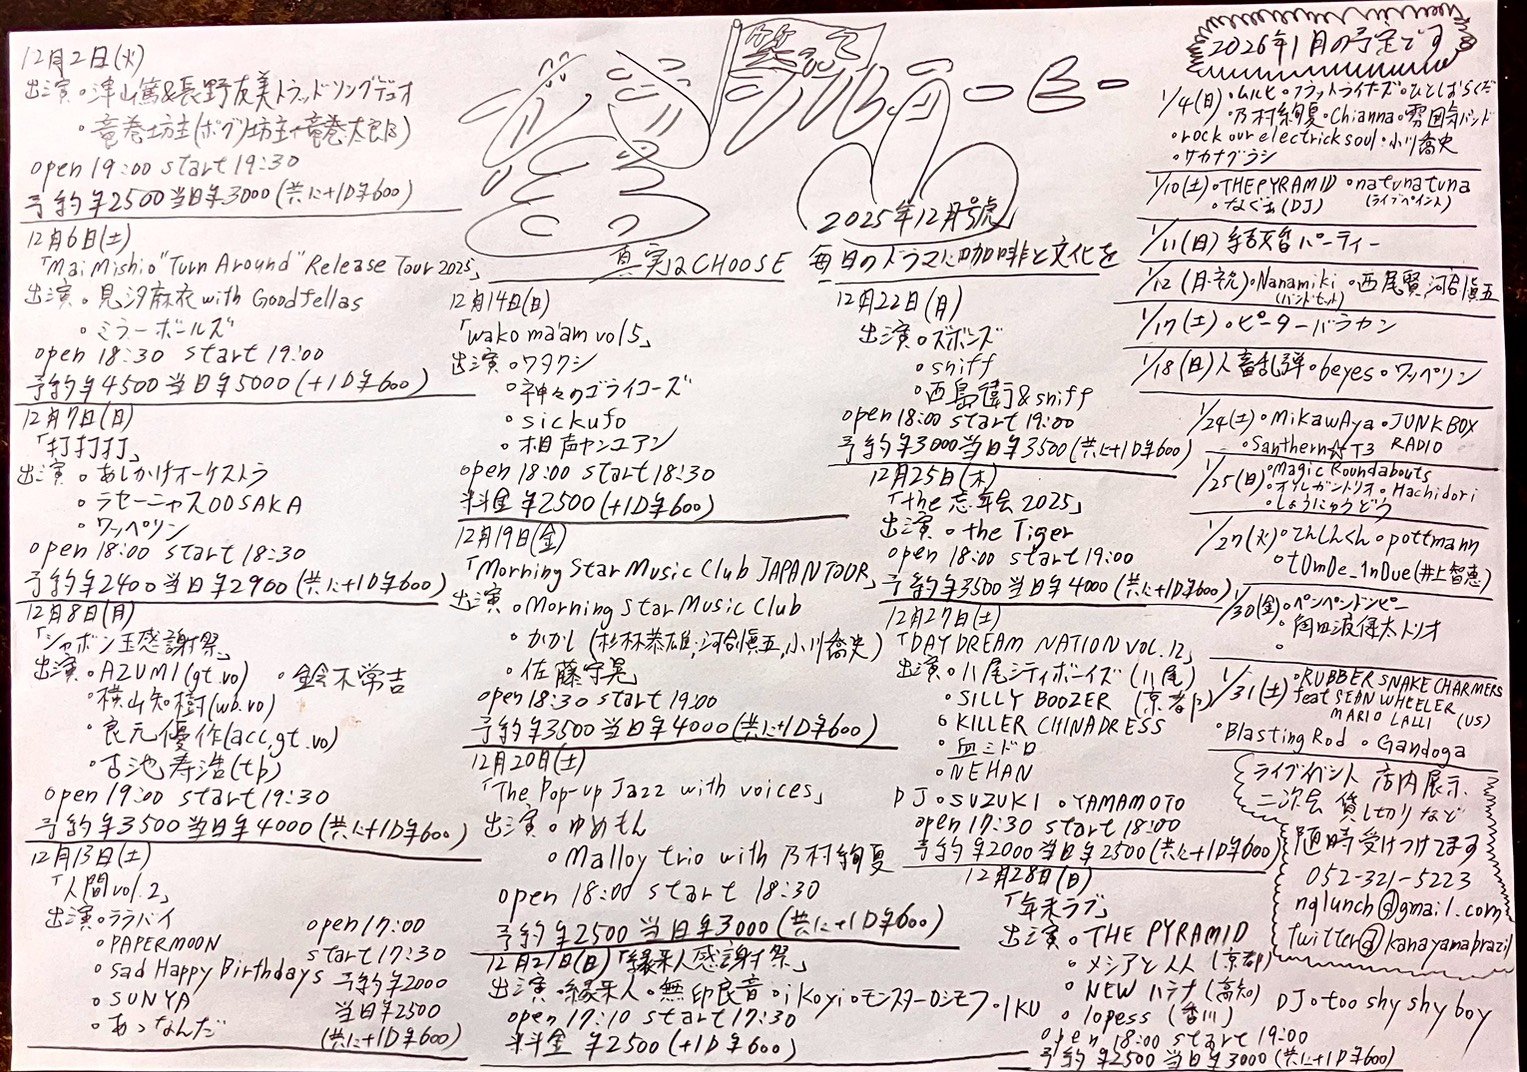 12月2日(火)
出演・津山篤&長野友美トラッドソングデュオ
・竜巻坊主(ボググリ坊主+竜巻太郎)
open 19:00 start 19:30
予約¥2500 当日¥3000(共に+1D¥600)
12月6日(土)
「Mai Mishio "Turn Around" Release Tour 2025」
出演・見汐麻衣 with Goodfellas
・ミラーボールズ
open 18:30 start 19:00
予約¥4500 当日¥5000(+1D¥600)
12月7日(日)
「打打打」
出演・あしかけオーケストラ
・ラセーニャスOOSAKA
・ワッペリン
open 18:00 start 18:30
予約¥2400 当日¥2900(共に+1D¥600)
12月8日(月)
「シャボン玉感謝祭」
出演・AZUMI(gt.vo) ・鈴木常吉
・横山知樹(wb.vo)
・良元優作(acc,gt.vo)
・古池寿浩(tb)
open 19:00 start 19:30
予約¥3500 当日¥4000(共に+1D¥600)
12月13日(土)
「人間vol.2」
出演・ララバイ
・PAPERMOON
・sad Happy Birthdays
・SUNYA
・あっなんだ
open 17:00
start 17:30
予約¥2000
当日¥2500
(共に+1D¥600)
2025年12月号
真実はCHOOSE 毎日のドラマに珈琲と文化を
12月14日(日)
「wako ma'am vol5」
出演・ワタクシ
・神々のゴライコーズ
・sickufo
・相声ヤンユアン
open 18:00 start 18:30
料金¥2500(+1D¥600)
12月19日(金)
「Morning Star Music Club JAPAN TOUR」
出演・Morning Star Music Club
・かかし(杉林恭雄,河合愼五,小川喬史)
・佐藤守晃
open 18:30 start 19:00
予約¥3500 当日¥4000(共に+1D¥600)
12月20日(土)
「The Pop-up Jazz with voices」
出演・ゆめもん
・Malloy trio with 乃村絢夏
open 18:00 start 18:30
予約¥2500 当日¥3000(共に+1D¥600)
12月21日(日)「縁来人感謝祭」
出演・縁来人・無印良音・ikoyi・モンスターロシモフ・IKU
open 17:10 start 17:30
料金 ¥2500(+1D¥600)
12月22日(月)
出演・ズボンズ
・sniff
・西島衛&sniff
open 18:00 start 19:00
予約¥3000 当日¥3500(共に+1D¥600)
12月25日(木)
「the 忘年会 2025」
出演・the Tiger
open 18:00 start 19:00
予約¥3500 当日¥4000(共に+1D¥600)
12月27日(土)
「DAY DREAM NATION VOL.12」
出演・八尾シティボーイズ(八尾)
・SILLY BOOZER(京都)
・KILLER CHINADRESS
・血ミドロ
・NEHAN
DJ・SUZUKI ・YAMAMOTO
open 17:30 start 18:00
予約¥2000 当日¥2500(共に+1D¥600)
12月28日(日)
「年末ラブ」
出演・THE PYRAMID
・メシアと人人(京都)
・NEWハラナ(高知)
・lopess(香川)
DJ・too shy shy boy
open 18:00 start 19:00
予約¥2500 当日¥3000(共に+1D¥600)
2026年1月の予定です
1/4(日)・ムルヒ・フラットライナーズ・ひとしばらくだ
・乃村絢夏・Chianna・雰囲気バンド
・rock our electricksoul・小川喬史
・サカナグラシ
1/10(土)・THE PYRAMID ・natunatuna
・なぐぁ(DJ) (ライブペイント)
1/11(日)結婚パーティー
1/12(月・祝)・Nanamiki ・西尾賢 河合愼五
(バンドセット)
1/17(土)・ピーターバラカン
1/18(日)人畜乱弾・6eyes・ワッペリン
1/24(土)・MikawAya・JUNKBOX
・Santhern☆T3 RADIO
1/25(日)・Magic Roundabouts
・オルレガントリオ・Hachidori
・しょうにゅうどう
1/27(火)・てんしんくん・pottmann
・tOmOe_1nOue(井上智恵)
1/30(金)・ペンペンドンピー
・角田波得太トリオ
1/31(土)・RUBBER SNAKE CHARMERS
feat SEAN WHEELER
MARIO LALLI (US)
・Blasting Rod ・Gandoga
ライブイベント 店内展示、
二次会 貸し切りなど
随時受けつけてます
052-321-5223
nqlunch@gmail.com
twitter@kanayamabrazil